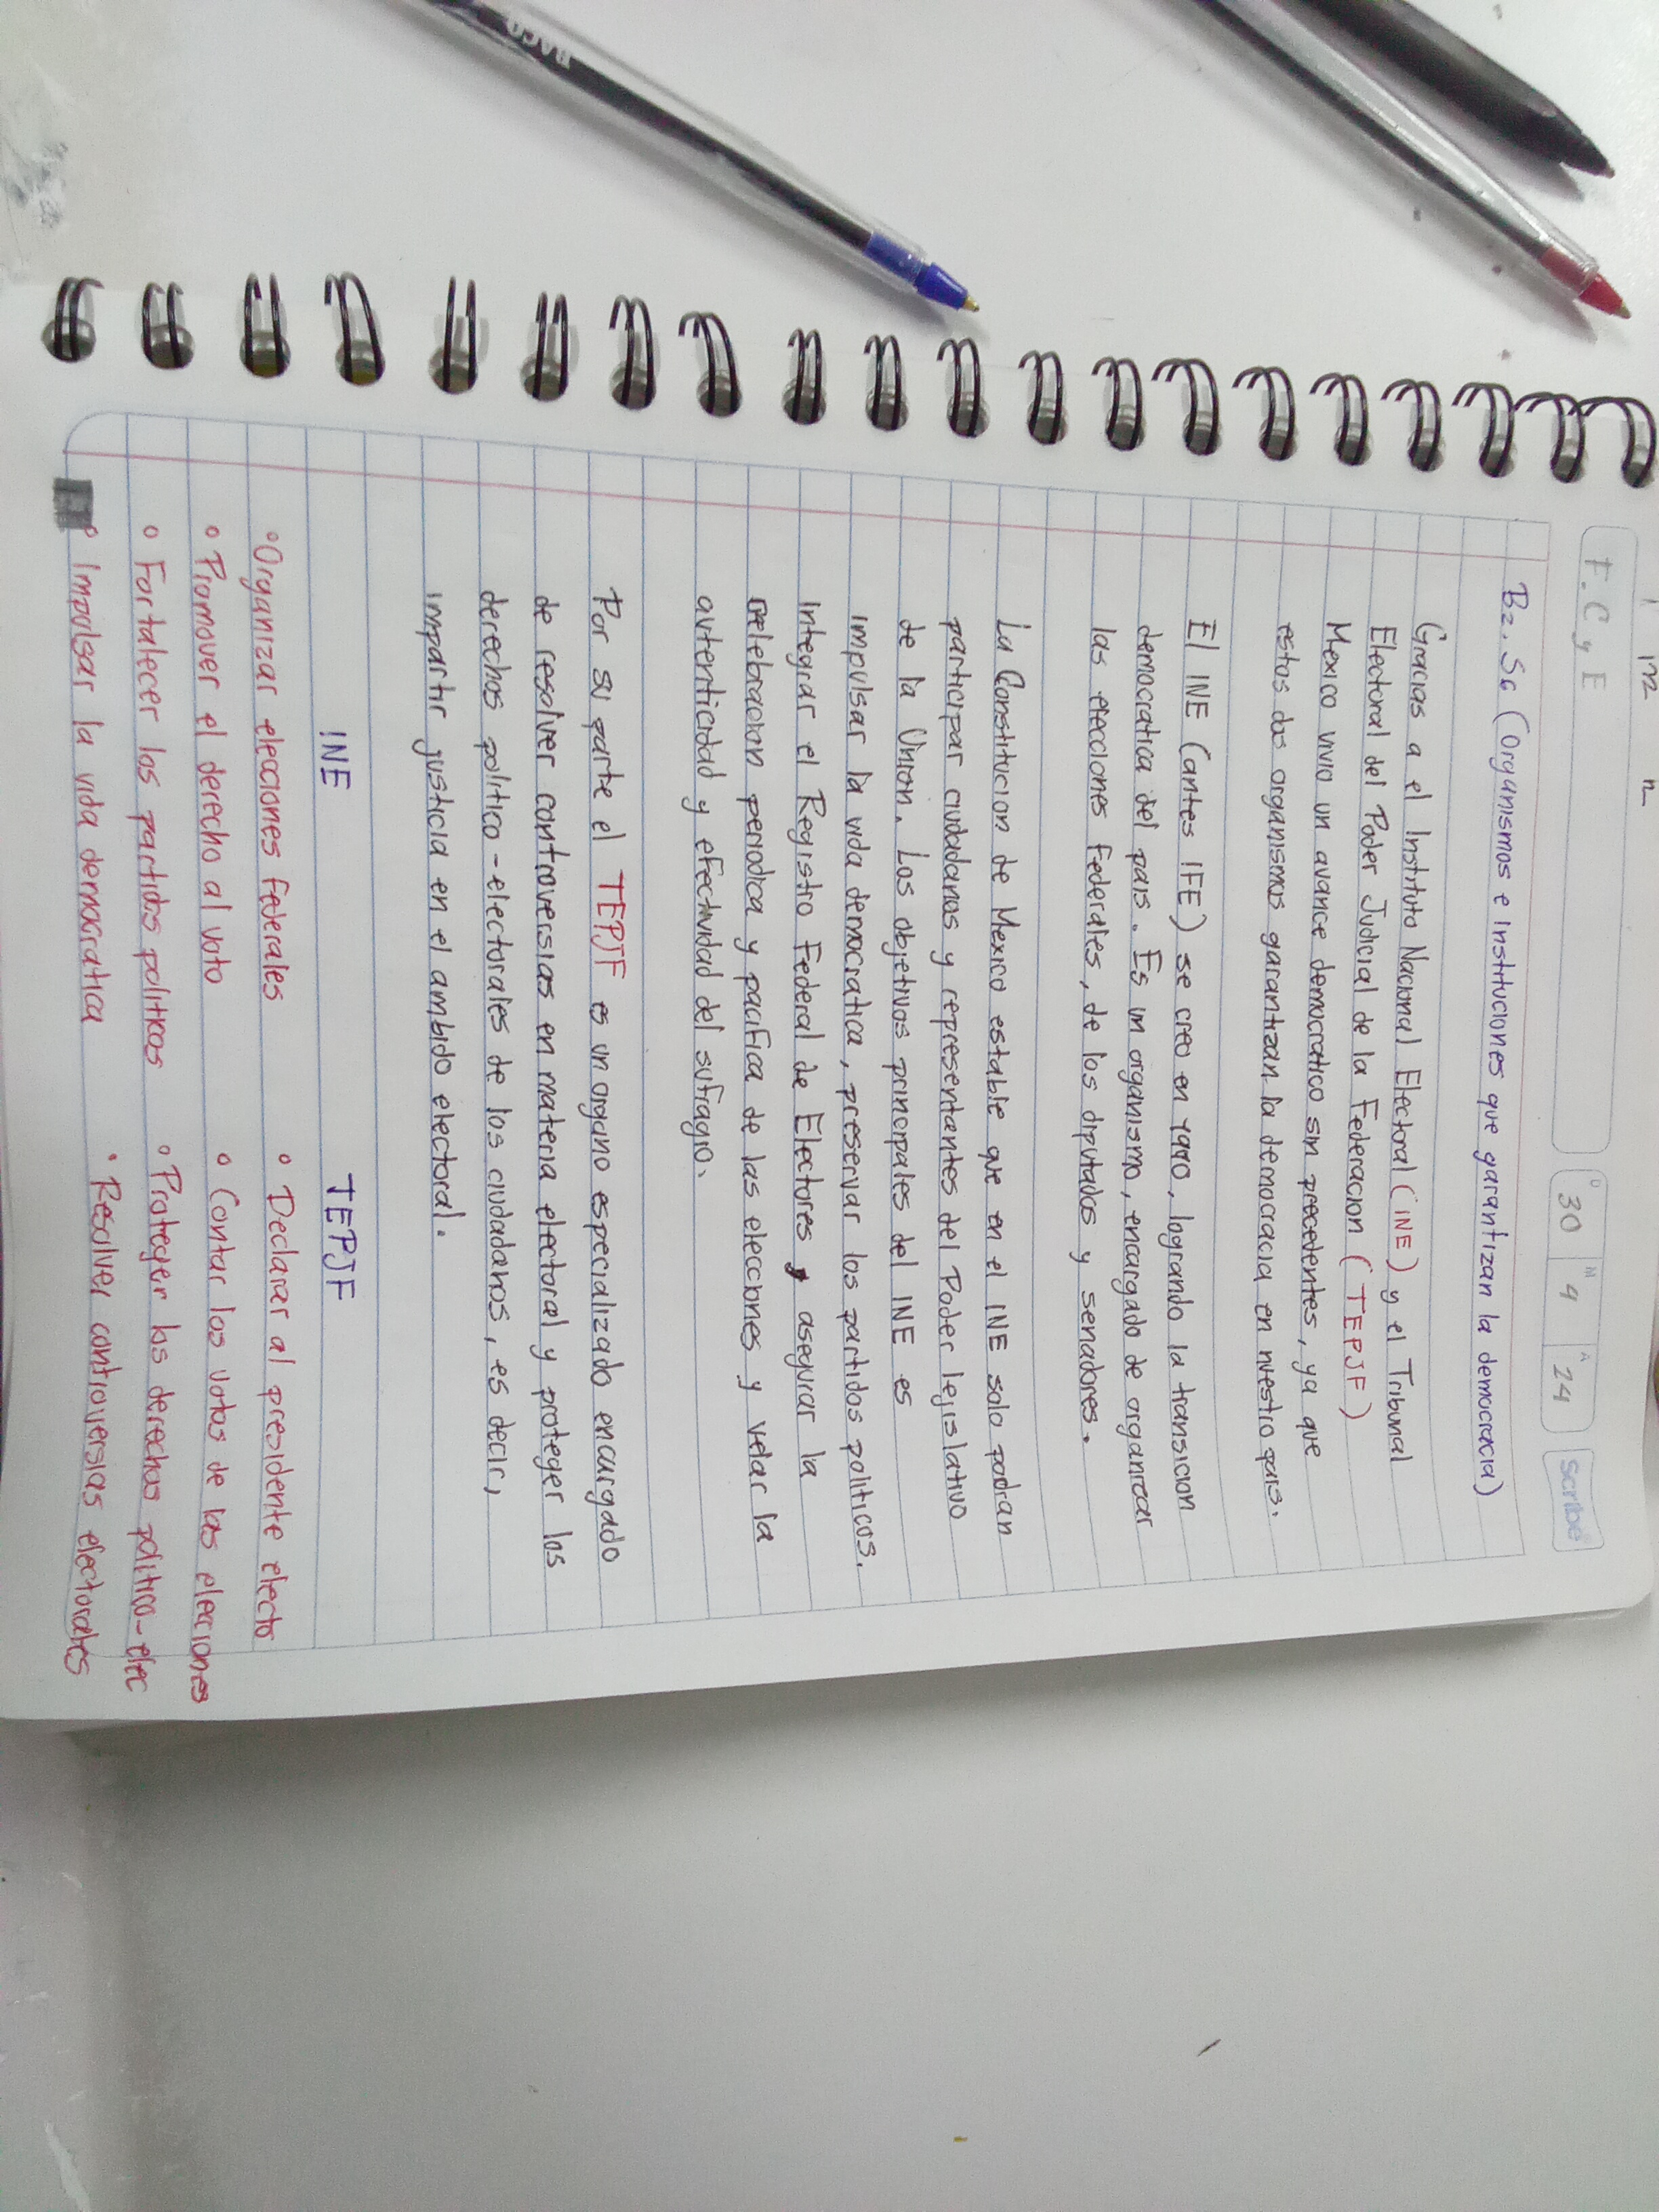 F. C y E
D 30 M 4 A 24
scribe
B2. S6 (Organismos e instituciones que garantizan la democracia)
Gracias a el Instituto Nacional Electoral (INE) y el Tribunal
Electoral del Poder Judicial de la Federacion (TEPJF)
Mexico vivio un avance democratico sin precedentes, ya que
estos dos organismos garantizan la democracia en nuestro pais.
El INE (antes IFE) se creo en 1990, logrando la transicion
democratica del pais. Es un organismo, encargado de organizar
las elecciones federales, de los diputados y senadores.
La Constitucion de Mexico estable que en el INE solo podran
participar ciudadanos y representantes del Poder legislativo
de la Union. Los objetivos principales del INE es
impulsar la vida democratica, preservar los partidos politicos.
integrar el Registro Federal de Electores, asegurar la
celebracion periodica y pacifica de las elecciones y velar la
autenticidad y efectividad del sufragio.
Por su parte el TEPJF es un organo especializado encargado
de resolver controversias en materia electoral y proteger los
derechos politico-electorales de los ciudadanos, es decir,
impartir justicia en el ambido electoral.
INE TEPJF
° Organizar elecciones federales ° Declarar al presidente electo
° Promover el derecho al voto ° Contar los votos de las elecciones
° Fortalecer los partidos politicos ° Proteger los derechos politico-elec
° Impulsar la vida democratica ° Resolver controversias electorales
BACO